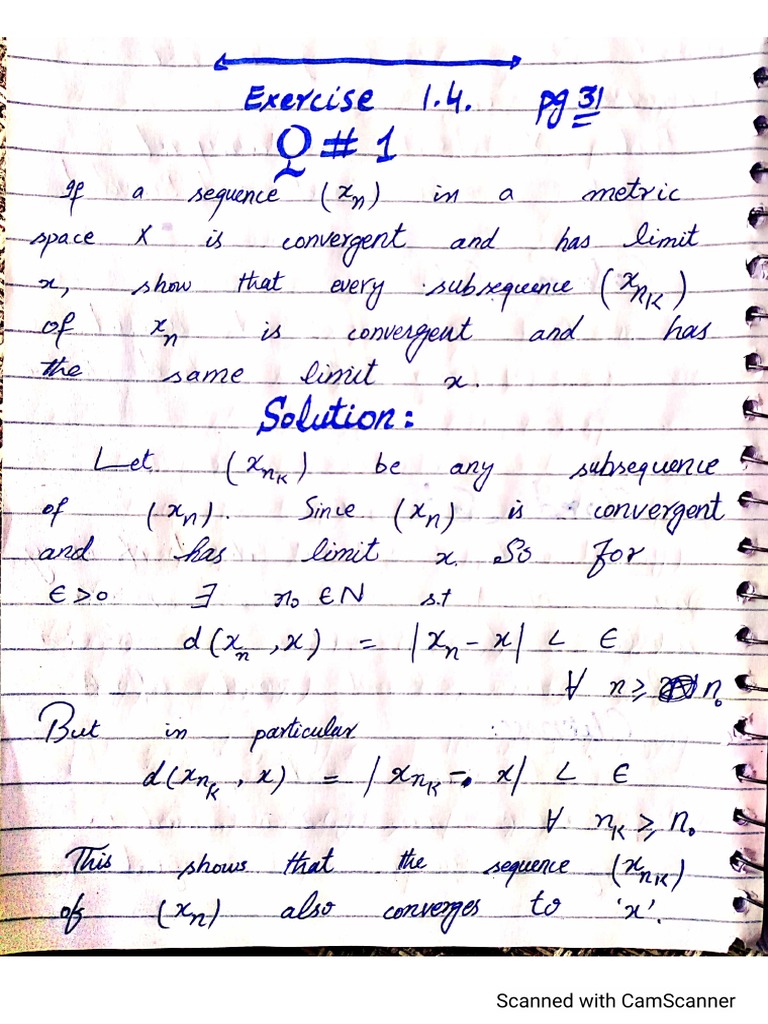 Exercise 1.4. pg 31
Q # 1
If a sequence (xₙ) in a metric
space X is convergent and has limit
x, show that every subsequence (xₙₖ)
of xₙ is convergent and has
the same limit x.
Solution:
Let (xₙₖ) be any subsequence
of (xₙ). Since (xₙ) is convergent
and has limit x. So for
ϵ > 0 ∃ n₀ ∈ N s.t
d(xₙ, x) = |xₙ - x| < ϵ
∀ n ≥ n₀
But in particular
d(xₙₖ, x) = |xₙₖ - x| < ϵ
∀ nₖ ≥ n₀
This shows that the sequence (xₙₖ)
of (xₙ) also converges to 'x'.
Scanned with CamScanner